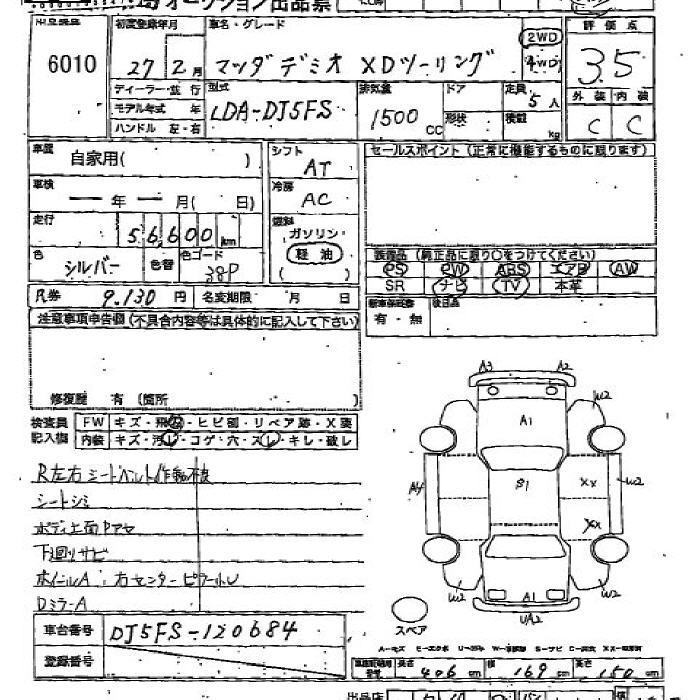 オークション出品票
出品番号 初度登録年月 車名・グレード 評価点
6010 27 2月 マツダ デミオ XDツーリング 2WD 4WD 3.5
ディーラー・並行 型式 排気量 ドア 定員 外装 内装
モデル年式 年 LDA-DJ5FS 1500cc 形状 5人 C C
ハンドル 左・右 積載 kg
車歴 自家用( ) シフト AT セールスポイント(正常に機能するものに限ります)
車検 ー年ー月( 日) 冷房 AC
走行 56,600km 燃料 ガソリン
色 シルバー 色替 色コード 38P 軽油
装備品(純正品に限り○をつけてください)
PS PW ABS エアB AW
SR ナビ TV 本革
R券 9.130円 名変期限 月 日
新車保証書 有・無 後日品
注意事項申告欄(不具合内容等は具体的に記入して下さい)
修復歴 有(箇所 )
検査員記入欄 FW キズ・飛石・ヒビ割・リペア跡・X要
内装 キズ・汚レ・コゲ・穴・スレ・キレ・破レ
R左右シートベルト作動不良
シートシミ
ボディ上面
下廻りサビ
ホイールA 右センターピラー
DミラーA
A3 A2
W2
A1
A4 S1 XX W2
XX
W2 A1 W2
UA2
スペア
車台番号 DJ5FS-120684
登録番号
長さ 406cm 幅 169cm 高さ 150cm
出品店